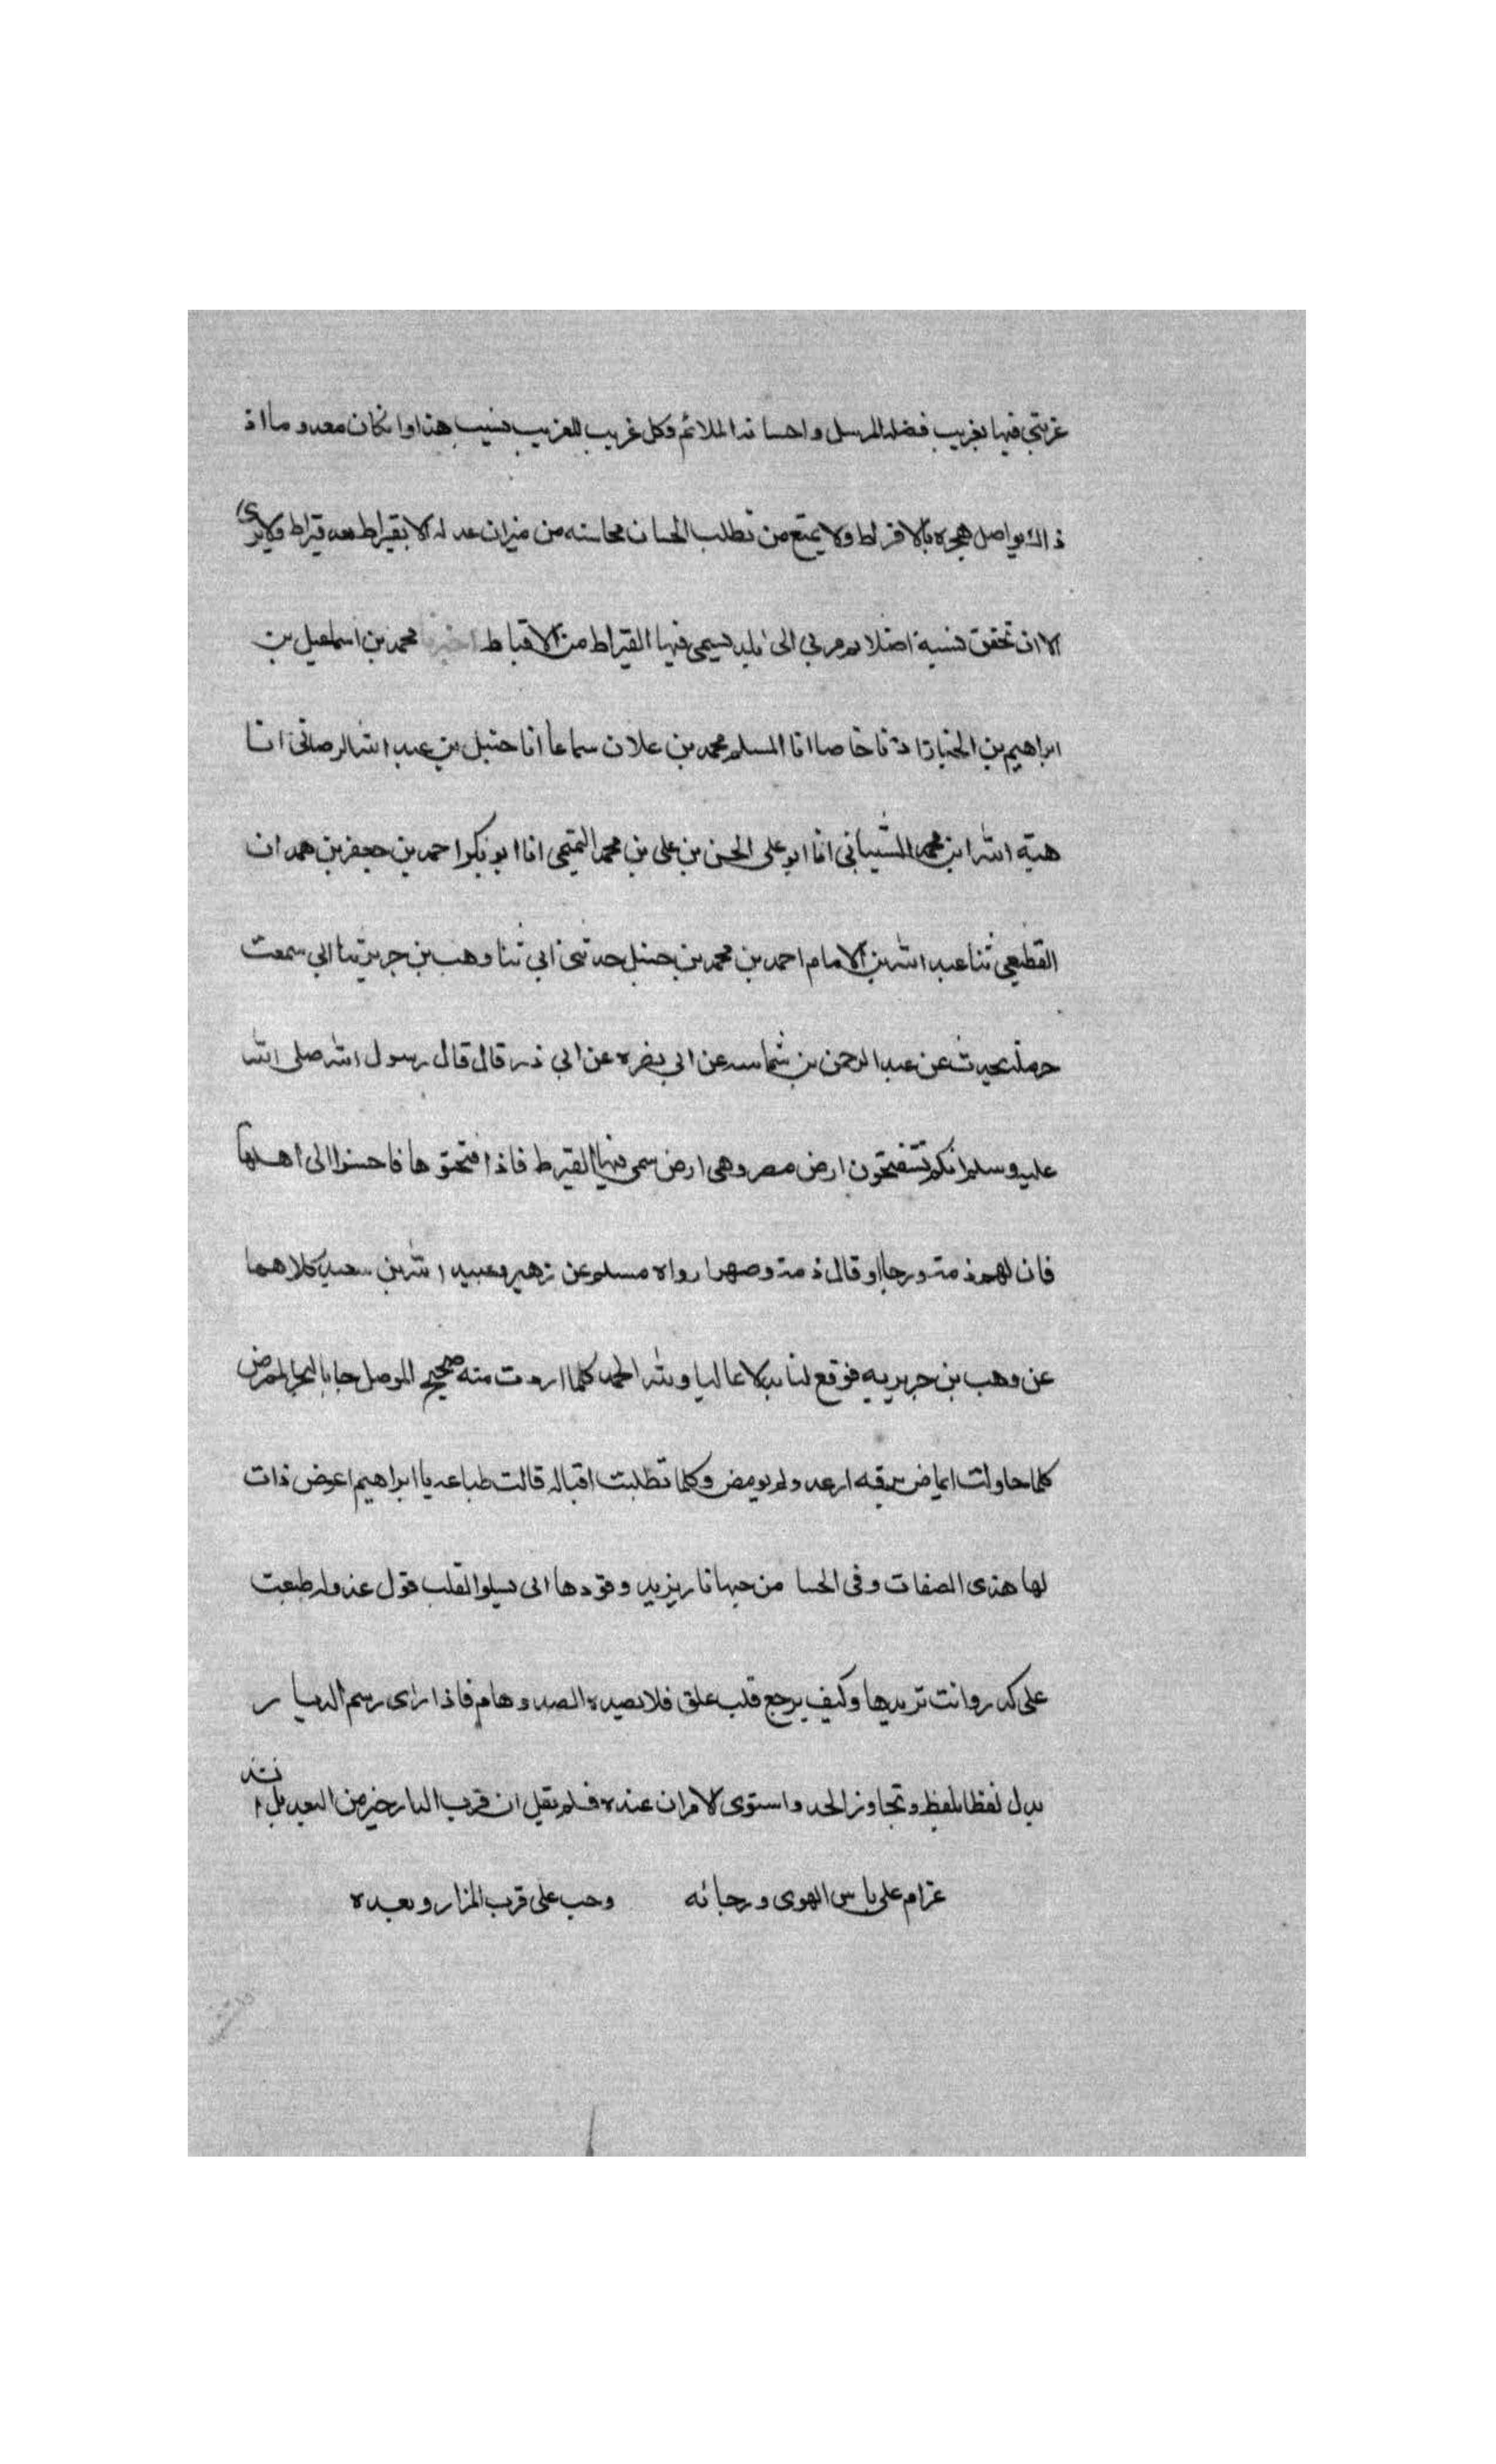 غربتي فيها بغريب فضله المرسل واحسانه الملائم وكل غريب للغريب نسيب هذا وان كان معدوما اذ
ذاك يواصل هجره بالافراط ولا يمتع من تطلب الحسان محاسنه من ميزان عدله الا بقيراط بعد قيراط ولا يرى
الا ان تحقق نسبة اضلا مرمى بي الى بلد يسمى فيها القيراط من الاقباط اخبرنا محمد بن اسماعيل بن
ابراهيم بن الخباز اذنا خاصا انا المسلم محمد بن علان سماعا انا حنبل بن عبد الله الرصافي انا
هبة الله ابن محمد الشيباني انا ابو علي الحسن بن علي بن محمد التميمي انا ابو بكر احمد بن جعفر بن حمدان
القطيعي ثنا عبد الله بن الامام احمد بن محمد بن حنبل حدثني ابي ثنا وهب بن جرير ثنا ابي سمعت
حرملة يحدث عن عبد الرحمن بن شماسه عن ابي بصره عن ابي ذر قال قال رسول الله صلى الله
عليه وسلم انكم ستفتحون ارض مصر وهي ارض يسمى فيها القيرط فاذا فتحتوها فاحسنوا الى اهلها
فان لهم ذمة ورحما او قال ذمة وصهرا رواه مسلم عن زهير وعبيد الله بن سعيد كلاهما
عن وهب بن جرير به فوقع لنا بدلا عاليا ولله الحمد كلما اردت منه صحيح الموصل جابا الممرض
كلما حاولت ايماض برقه ارعد ولم يومض وكلما تطلبت اقباله قالت طباعه يا ابراهيم اعرض ذات
لها هذى الصفات وفي الحسا من حبها نار يزيد وقودها اني يسلوا القلب قول عذوله طبعت
على كدر وانت تريدها وكيف يرجع قلب علق فلا يصيده الصد وهام فاذا راى رسم الديار
بدل لفظا بلفظ وتجاوز الحد واستوى الامران عنده فلم يقل ان قرب الدار خير من البعد بل انشد
غرام على ياس الهوى ورجائه وحب على قرب المزار وبعده